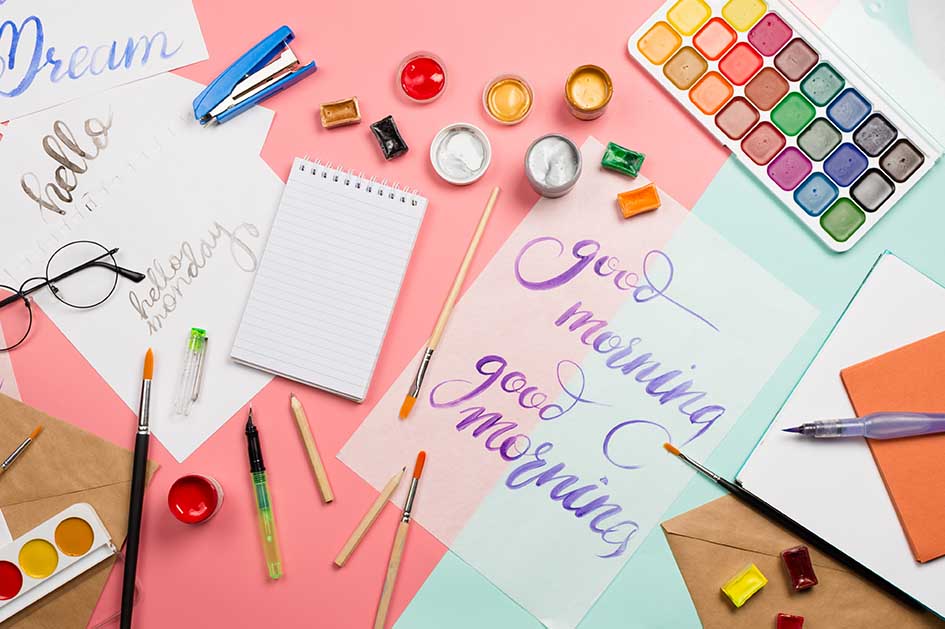 Dream
hello
hello
monday
good
morning
good
morning